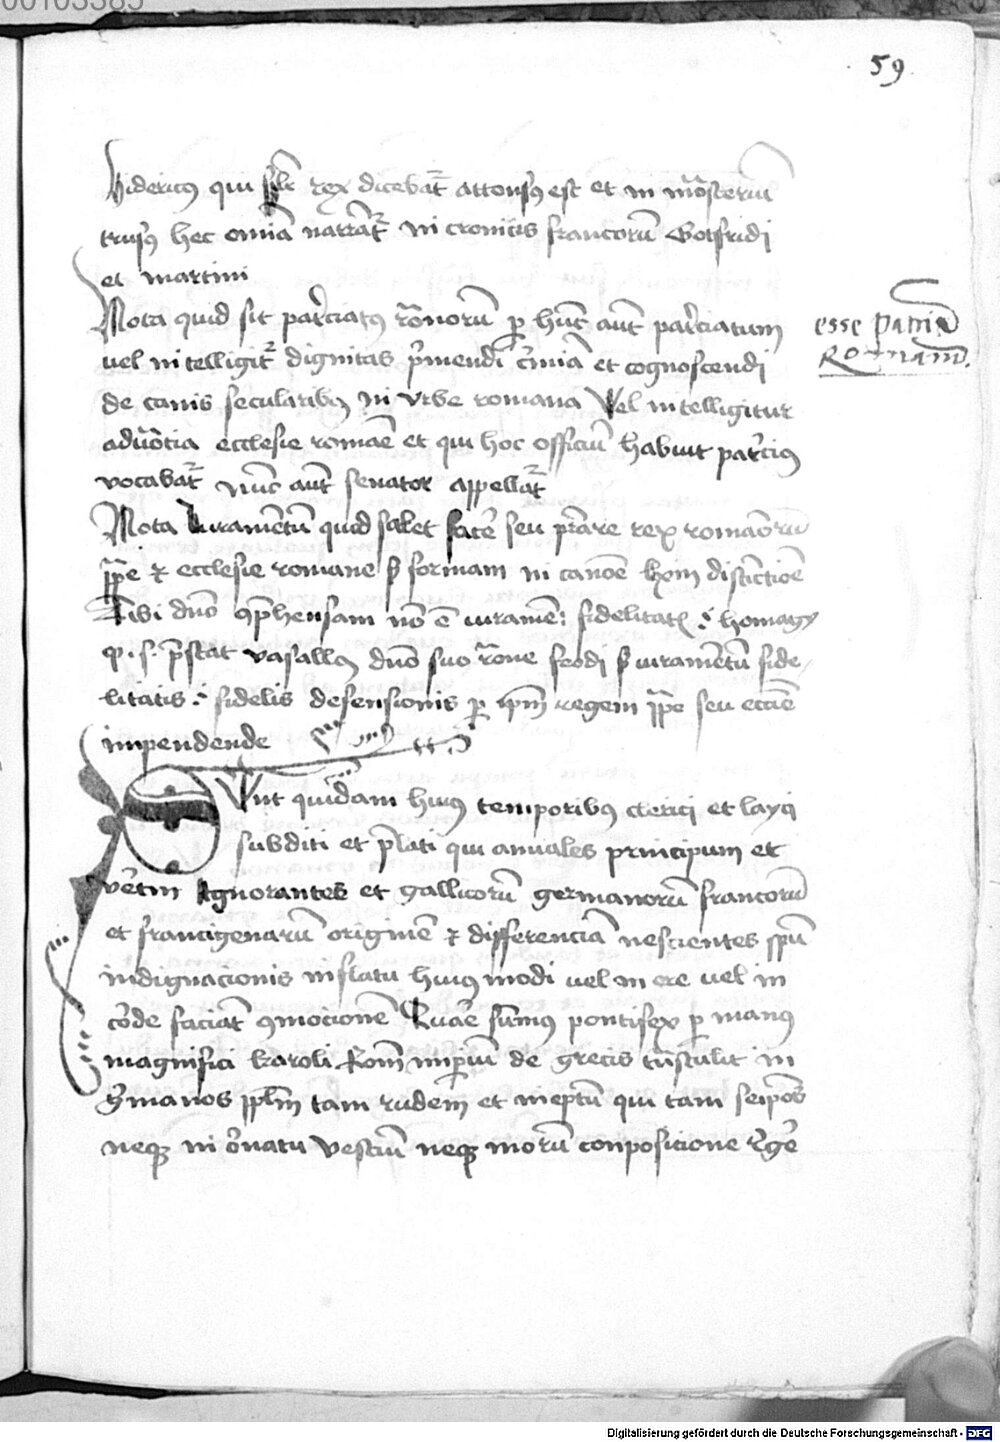 00103385
59
hidericus qui rex dicebat attonsus est et in
trusus hec omnia narrantur in cronicis francorum Gotfridi
et martini
Nota quid sit patriciatus romanorum per hunc autem patriciatum
esse Patriciu
Romanam.
vel intelligitur dignitas premendi et cognoscendi
de causis secularibus in urbe romana Vel intelligitur
aduocatia ecclesie romane et qui hoc officium habuit patricius
vocabatur nunc autem senator appellatur
Nota Iuramentum quid solet facere seu prestare rex romanorum
pape et ecclesie romane secundum formam in canone distinctione
Tibi domino comprehensam non est iuramentum fidelitatis homagii
prestat vasallus domino suo ratione feodi sed iuramentum fide
litatis fidelis defensionis per ipsum regem pape seu ecclesie
impendende
Sunt quidam huius temporibus clerici et layci
subditi et prelati qui annales principum et
ignorantes et gallicorum germanorum francorum
et francigenarum originem et differenciam nescientes spiritum
indignacionis inflatu huius modi vel in ore vel in
corde faciant commocionem Quare summus pontifex per manus
magnifici karoli Romanum imperium de grecis transtulit in
germanos populum tam rudem et ineptum qui tam seipsos
neque in ornatu vestium neque morum conposicione regere
Digitalisierung gefördert durch die Deutsche Forschungsgemeinschaft - DFG